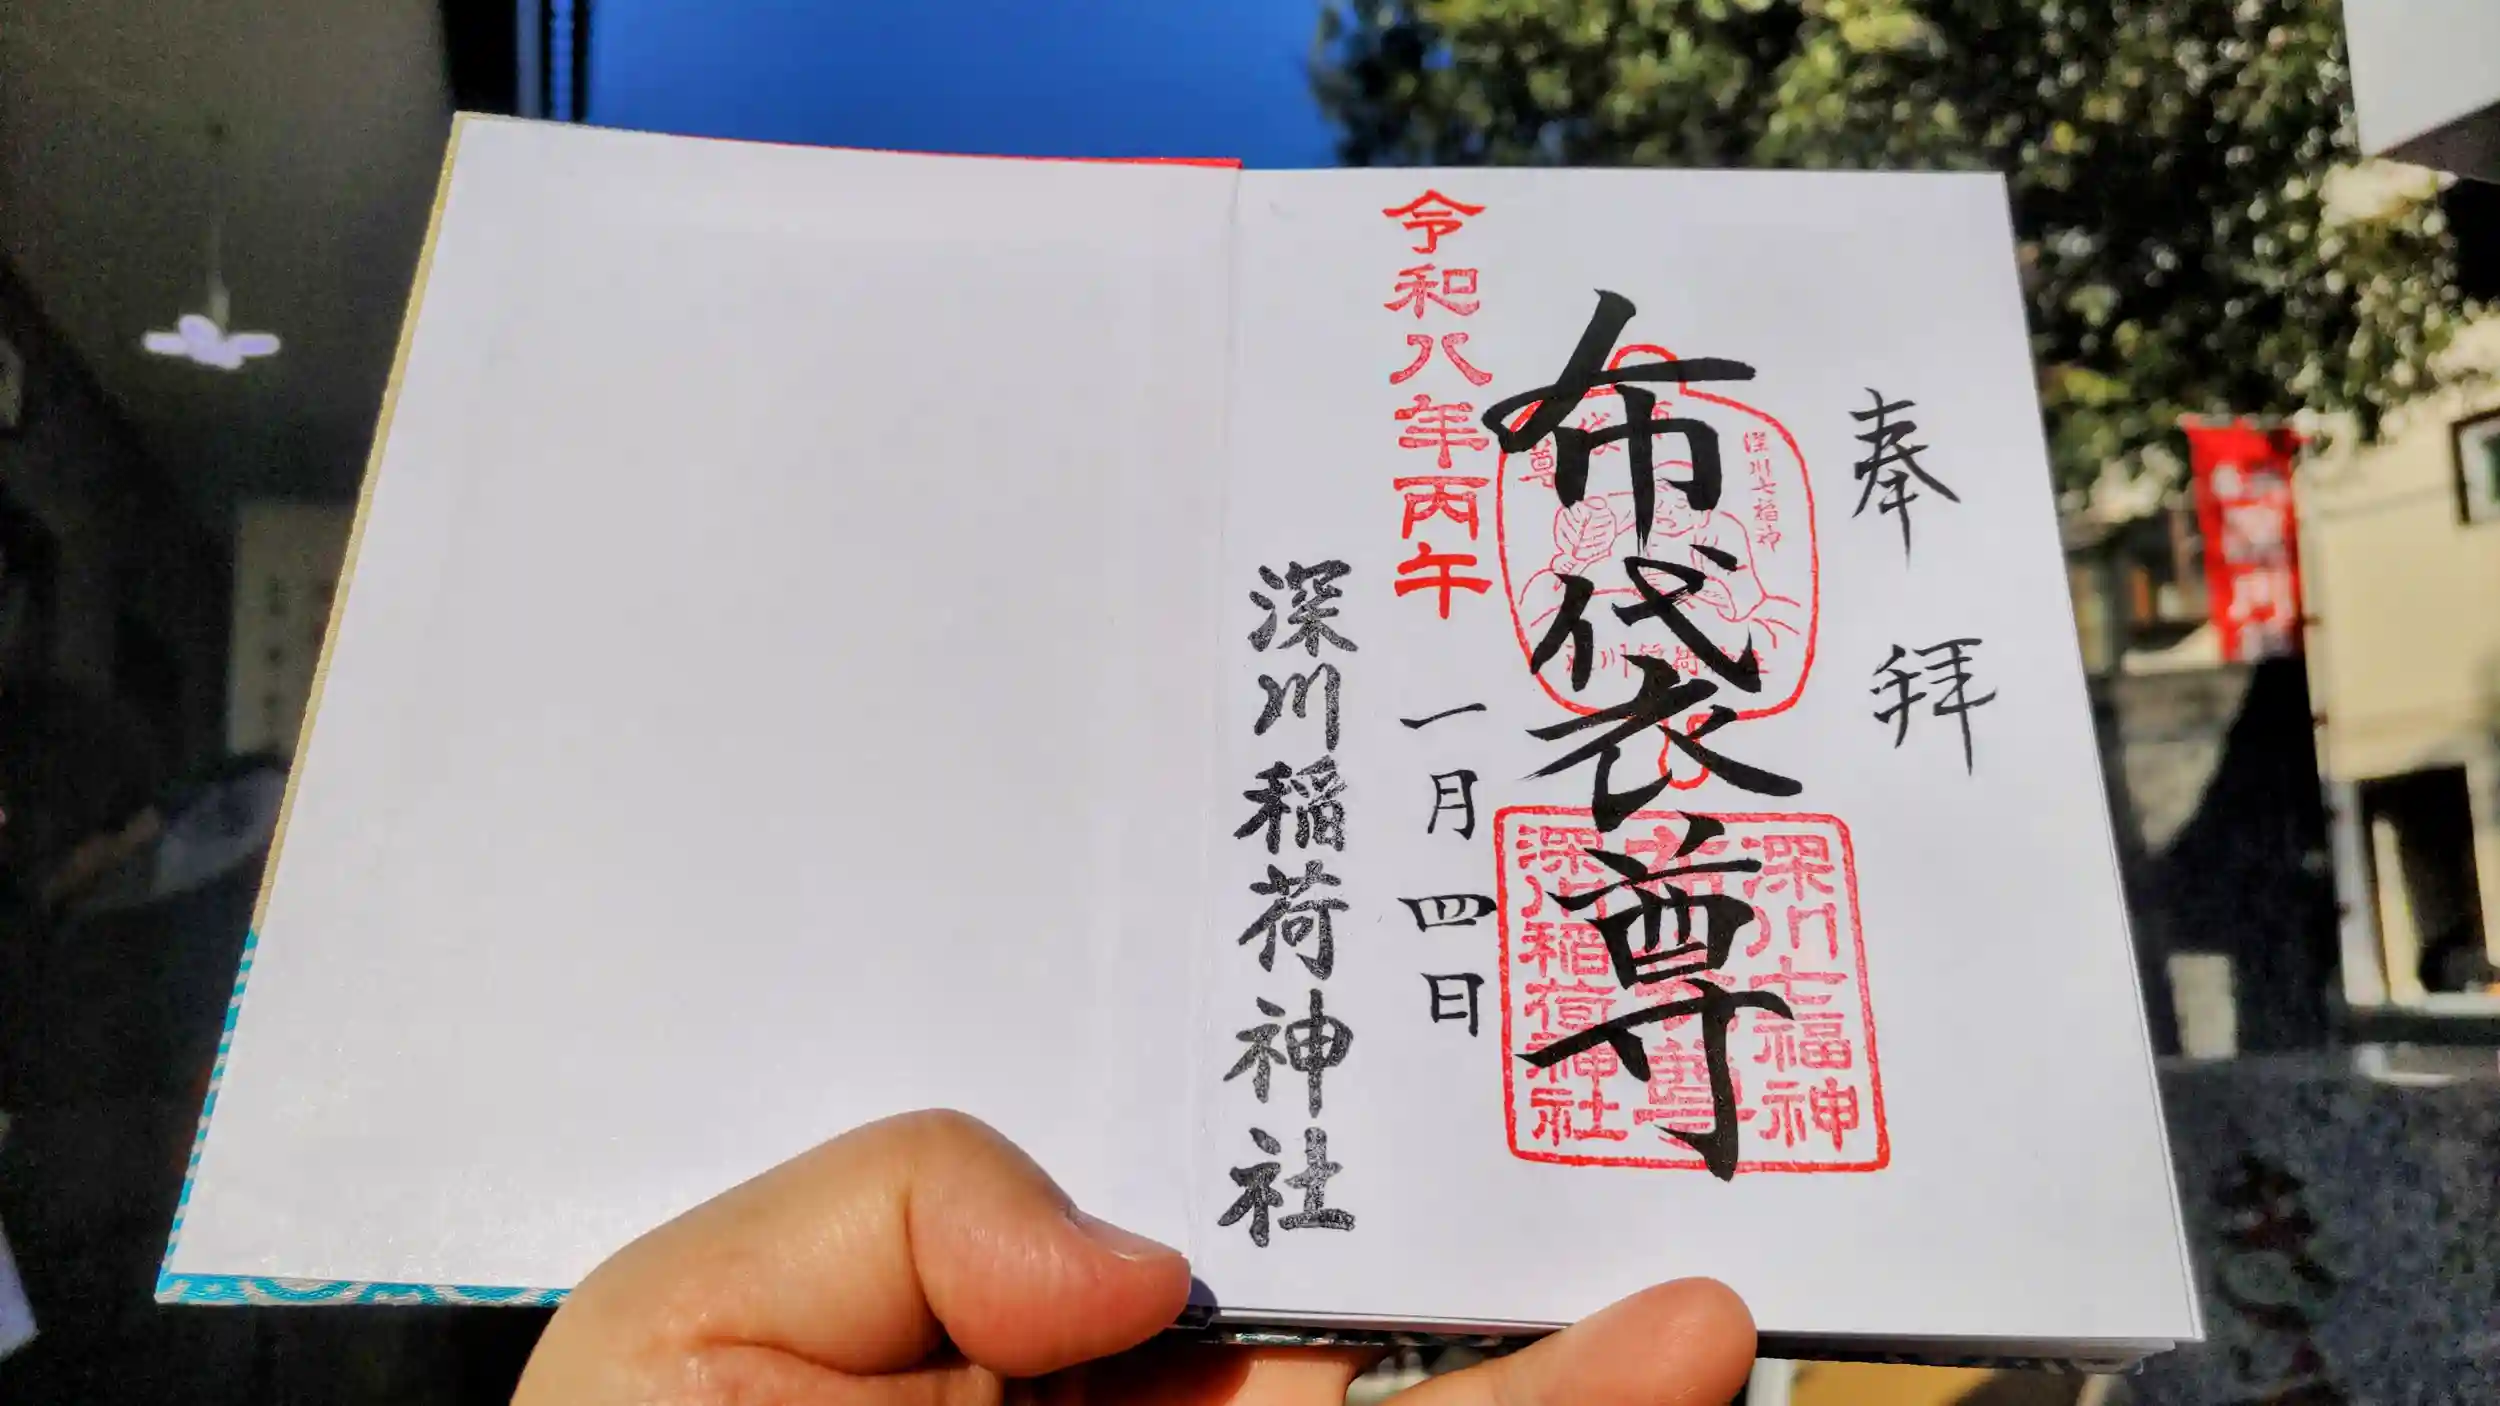 奉拝
布袋尊
深川七福神
布袋尊
深川稲荷神社
令和八年丙午
一月四日
深川稲荷神社